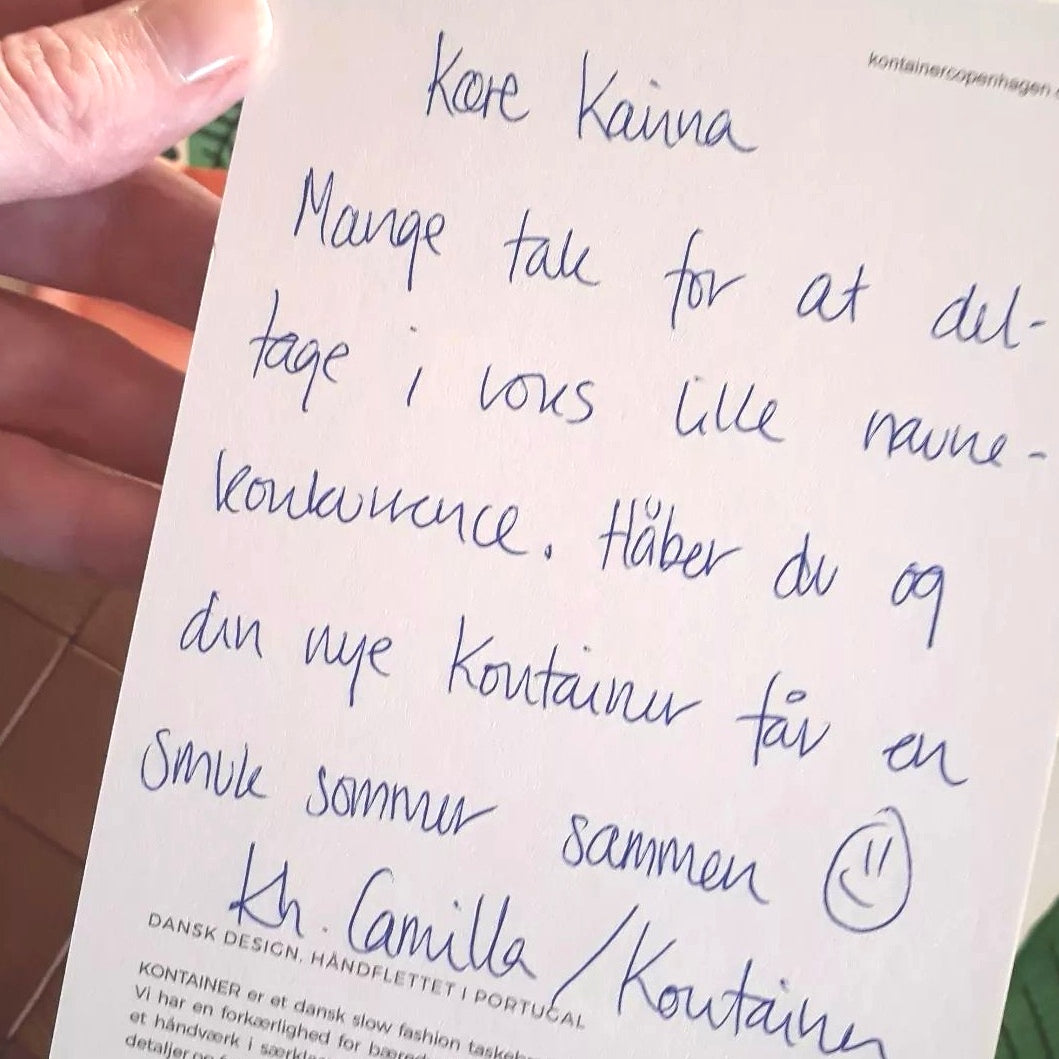 kontainercopenhagen.
Kære Karina
Mange tak for at del-
tage i vores lille navne-
konkurrence. Håber du og
din nye Kontainer får en
smuk sommer sammen
kh. Camilla / Kontainer
DANSK DESIGN, HÅNDFLETTET I PORTUGAL
KONTAINER er et dansk slow fashion
Vi har en forkærlighed for
et håndværk i
detaljer og